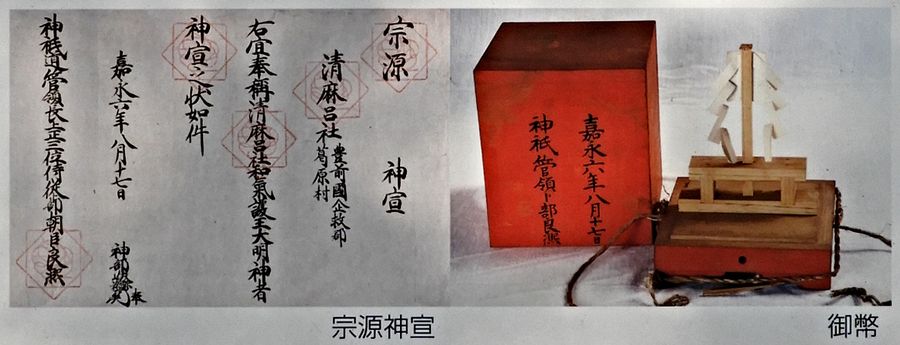 宗源　神宣
清麻呂社 豊前國企救郡
葛原村
右宜奉稱清麻呂社和氣護王大明神者
神宣之状如件
嘉永六年八月十七日
神部 奉
神祇道管領長上正三位侍従卜部朝臣良熈
宗源神宣
嘉永六年八月十七日
神祇管領卜部良熈
御幣